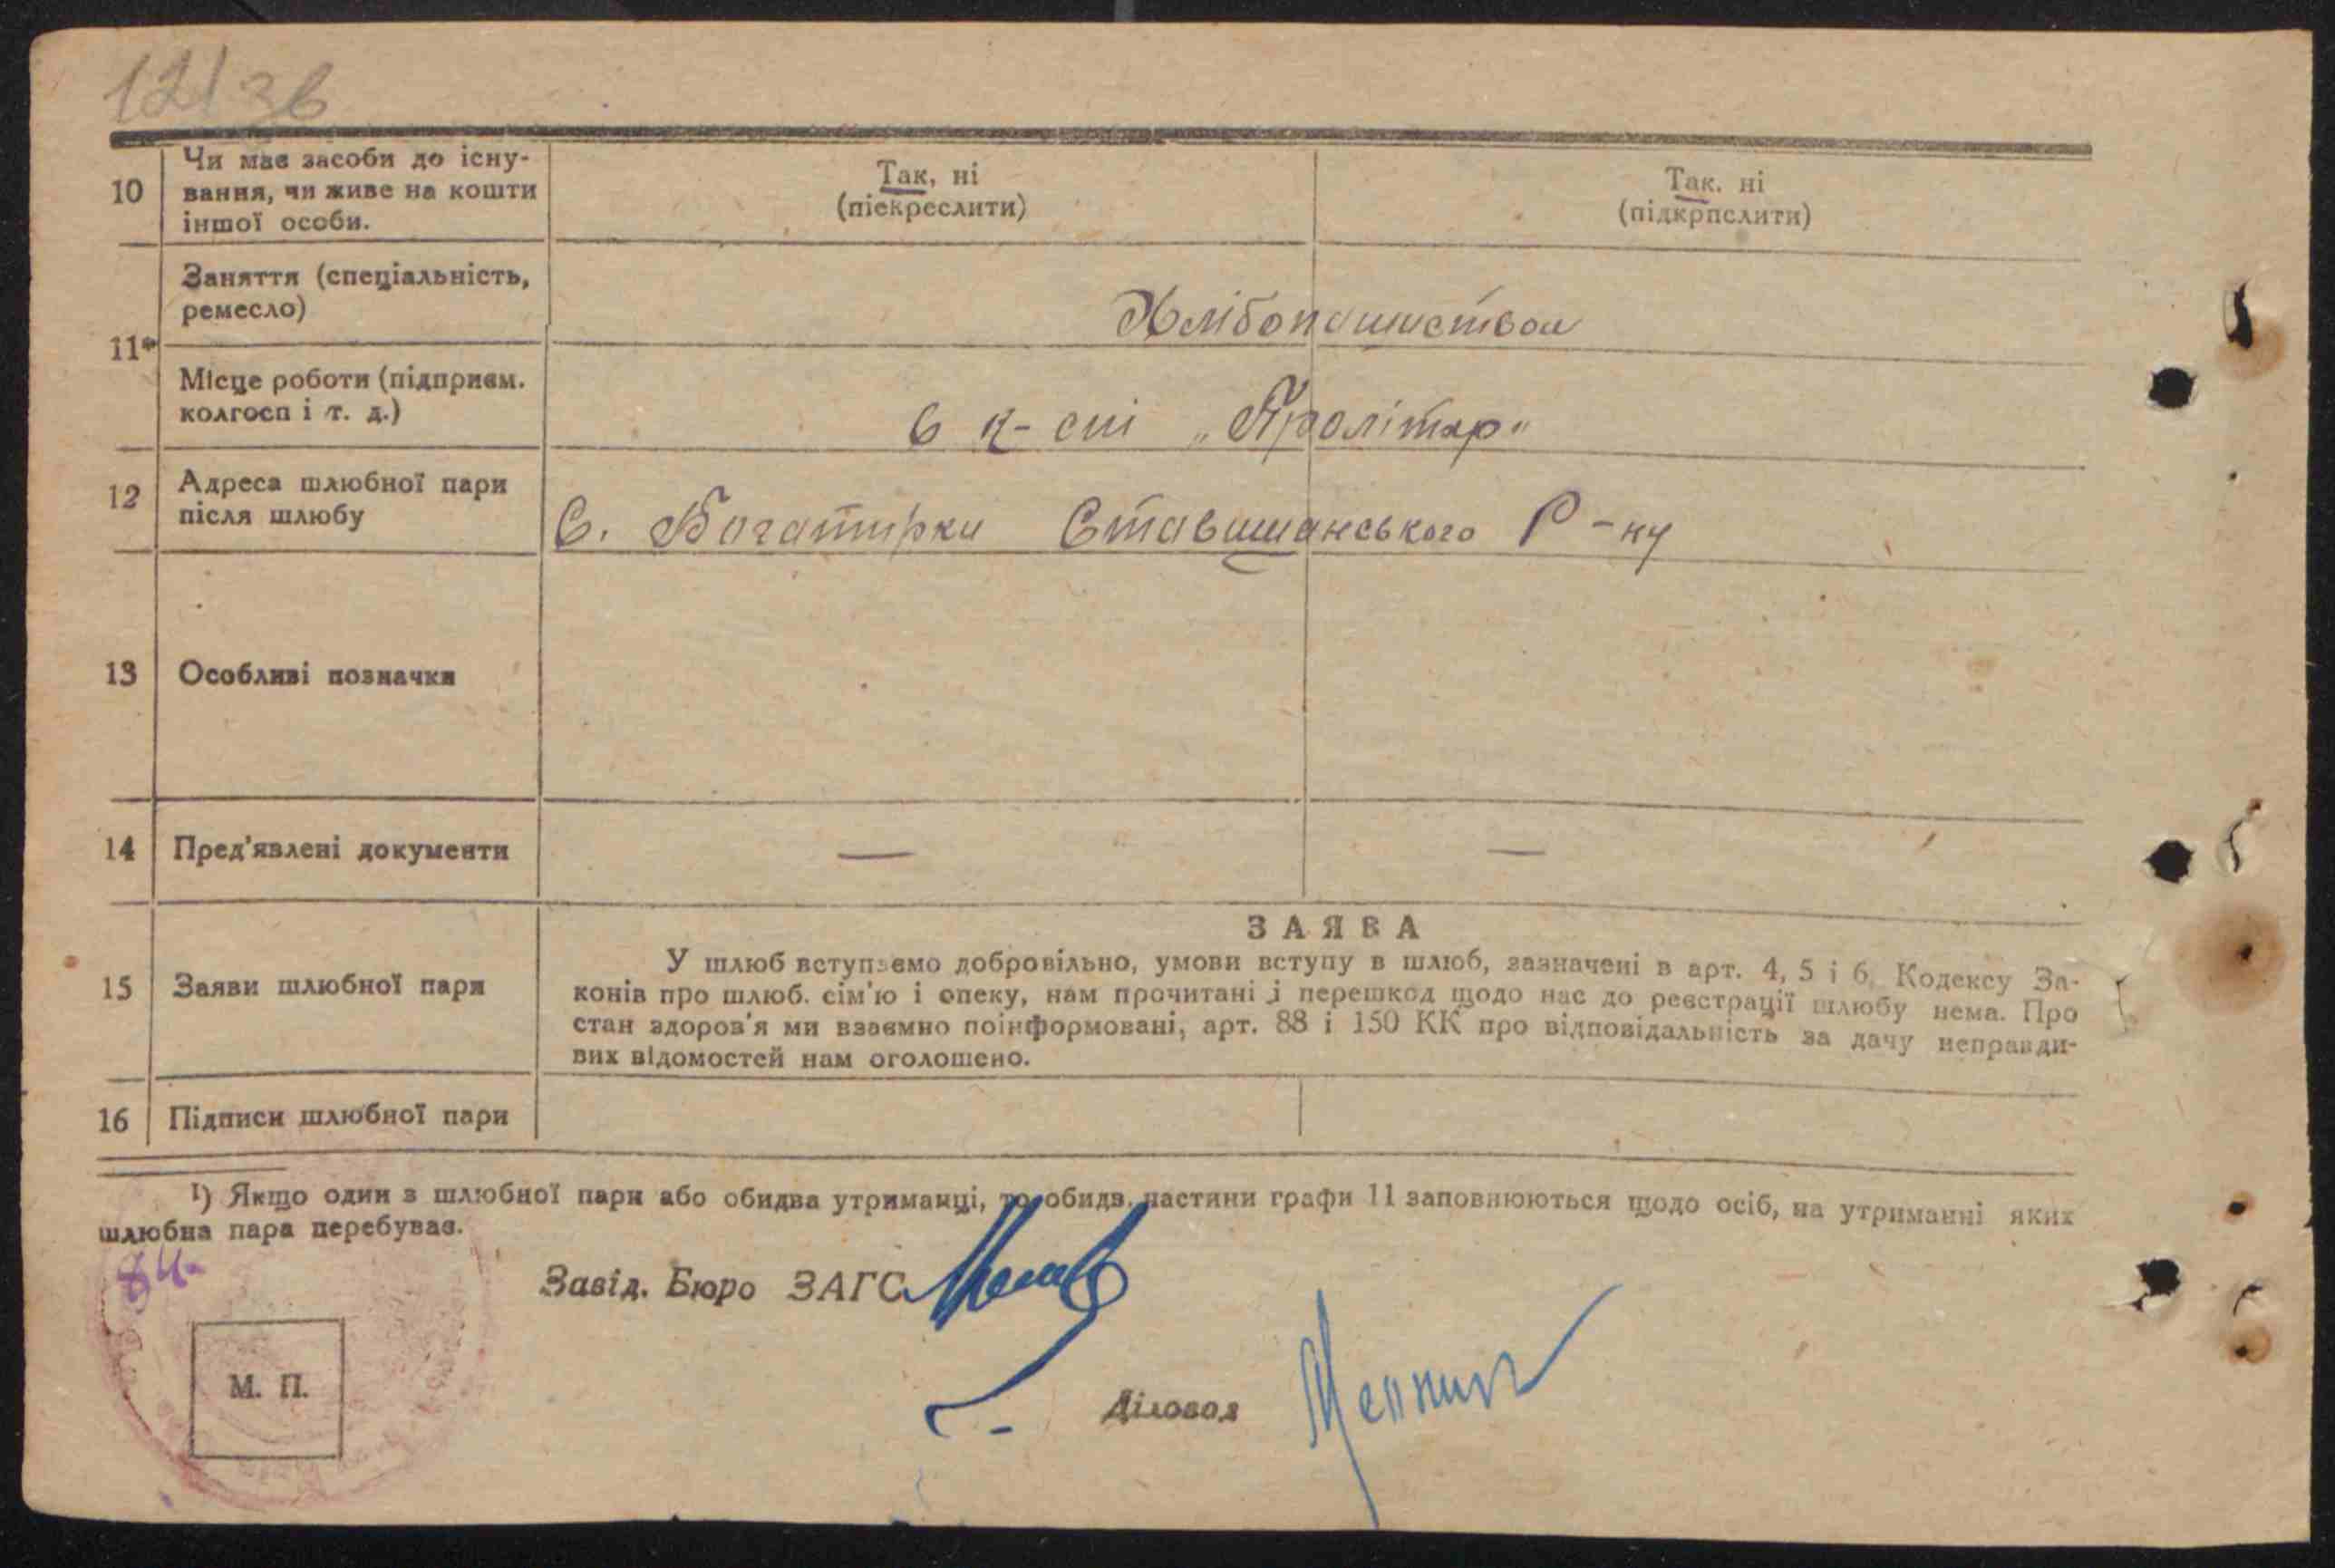 12/36
10 Чи має засоби до існу-
вання, чи живе на кошти
іншої особи.
Так, ні
(піекреслити)
Так. ні
(підкрпслити)
11*
Заняття (спеціальність,
ремесло)
Хлібопашиством
Місце роботи (підприєм.
колгосп і т. д.)
в к-спі „Пролітар"
12 Адреса шлюбної пари
після шлюбу
С. Богатирки Ставищанського Р-ну
13 Особливі позначки
14 Пред'явлені документи — —
15 Заяви шлюбної пари
ЗАЯВА
У шлюб вступаємо добровільно, умови вступу в шлюб, зазначені в арт. 4, 5 і 6, Кодексу За-
конів про шлюб. сім'ю і опеку, нам прочитані і перешкод щодо нас до реєстрації шлюбу нема. Про
стан здоров'я ми взаємно поінформовані, арт. 88 і 150 КК про відповідальність за дачу неправди-
вих відомостей нам оголошено.
16 Підписи шлюбної пари
1) Якщо один з шлюбної пари або обидва утриманці, то обидв. частини графи 11 заповнюються щодо осіб, на утриманні яких
шлюбна пара перебуває.
84.
Завід. Бюро ЗАГС
М. П.
Діловод